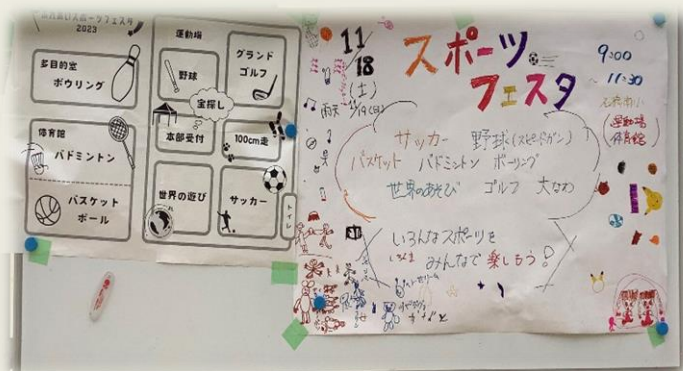 スポーツフェスタ
2023
多目的室
ボウリング
体育館
バドミントン
バスケット
ボール
運動場
野球
グランド
ゴルフ
宝探し
本部受付
100cm走
世界の遊び
サッカー
トイレ
11/18
(土)
雨天 11/19(日)
スポーツ
フェスタ
9:00
~ 11:30
運動場
体育館
サッカー 野球(スピードガン)
バスケット バドミントン ボーリング
世界のあそび ゴルフ 大なわ
いろんなスポーツを
みんなで楽しもう!